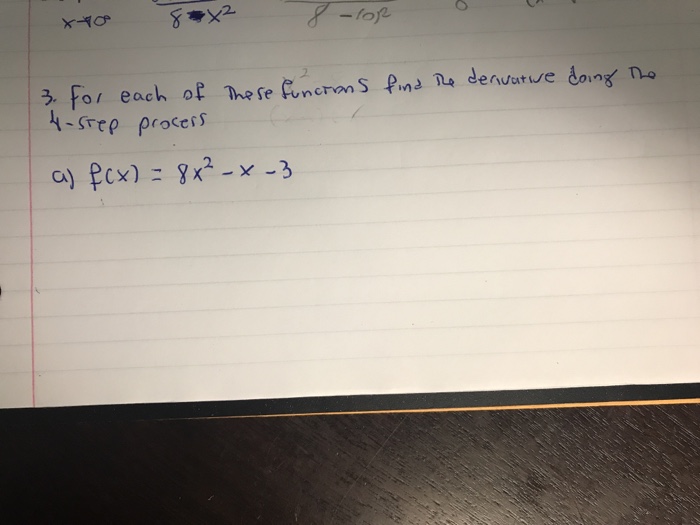 x→∞ 8-x² 8-10²
2
3. For each of These functions find The derivative doing The
4-step process
a) f(x) = 8x² - x - 3